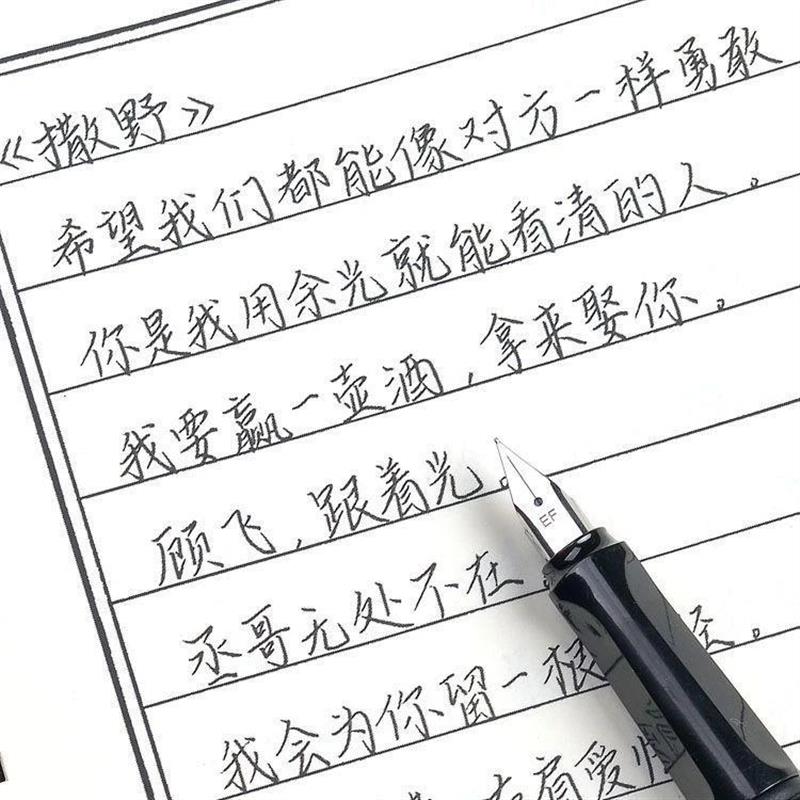 《撒野》
希望我们都能像对方一样勇敢
你是我用余光就能看清的人。
我要赢一壶酒,拿来娶你。
顾飞,跟着光
丞哥无处不在
我会为你留一根
有爱
EF